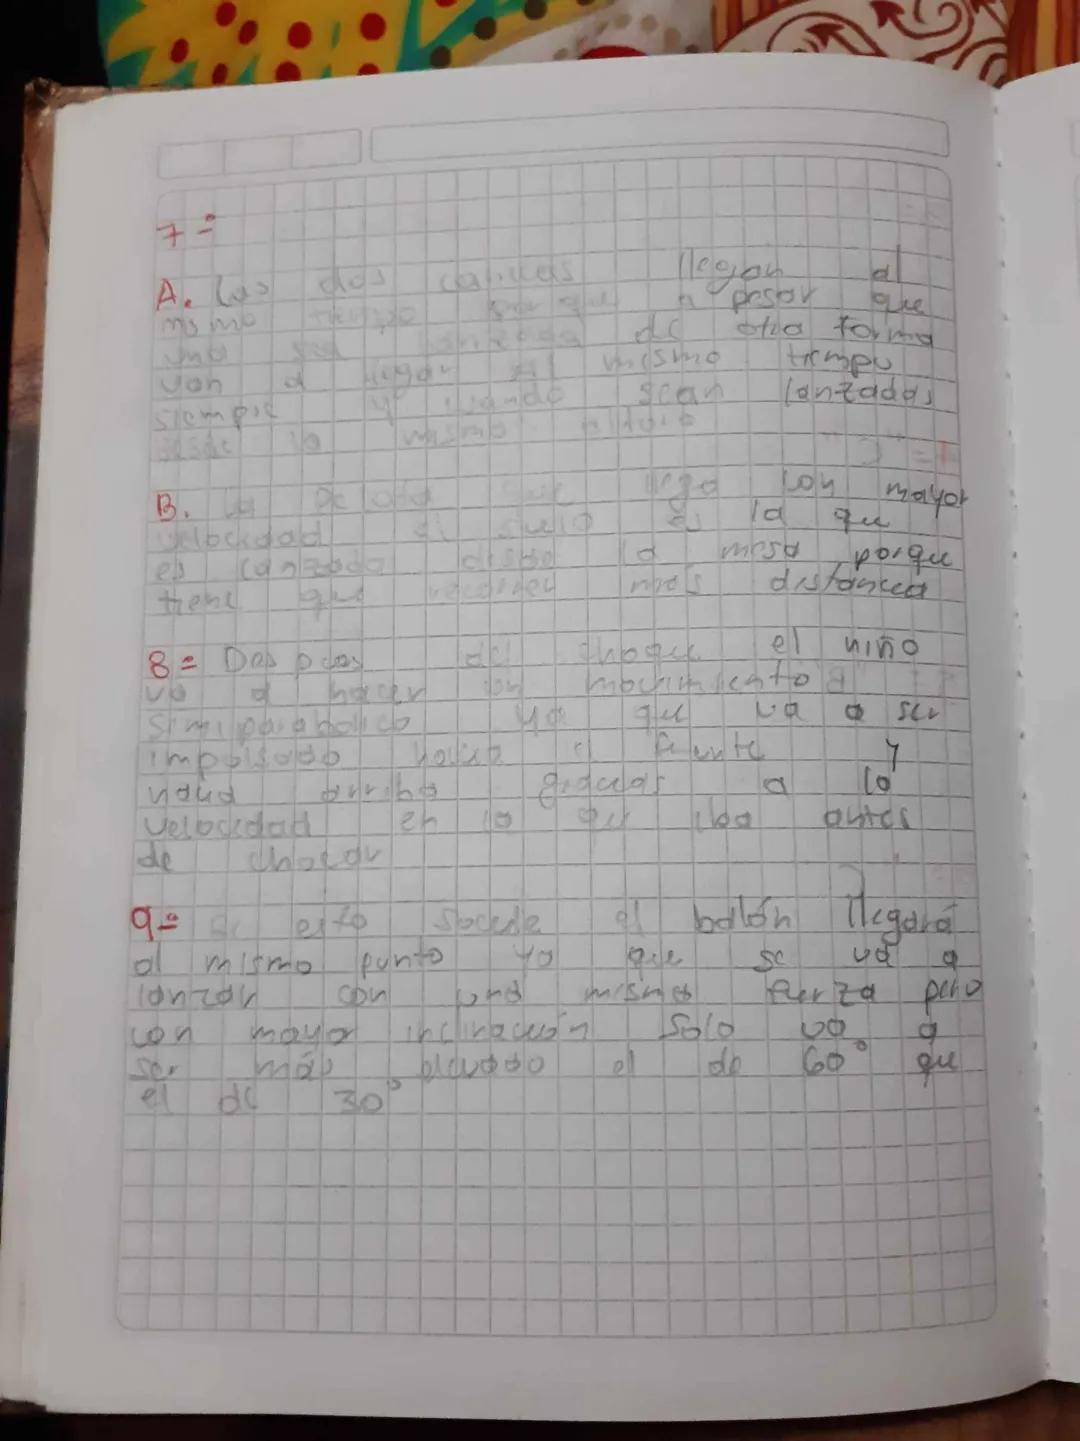 7=
A. Las dos canicas llegan al
mismo tiempo porque a pesar que
una sea lanzada de otra forma
van a llegar al mismo tiempo
siempre y cuando sean lanzadas
desde la misma altura
B. La pelota que llega con mayor
velocidad al suelo es la que
es lanzada desde la mesa porque
tiene que recorrer más distancia
8= Despues del choque el niño
va a hacer un movimiento
simiparabolico ya que va a ser
impulsado hacia el frente y
hacia arriba gracias a la
velocidad en la que iba antes
de chocar
9= Si esto sucede el balón llegará
al mismo punto ya que se va a
lanzar con una misma fuerza pero
con mayor inclinación solo va a
ser más elevado el de 60° que
el de 30°